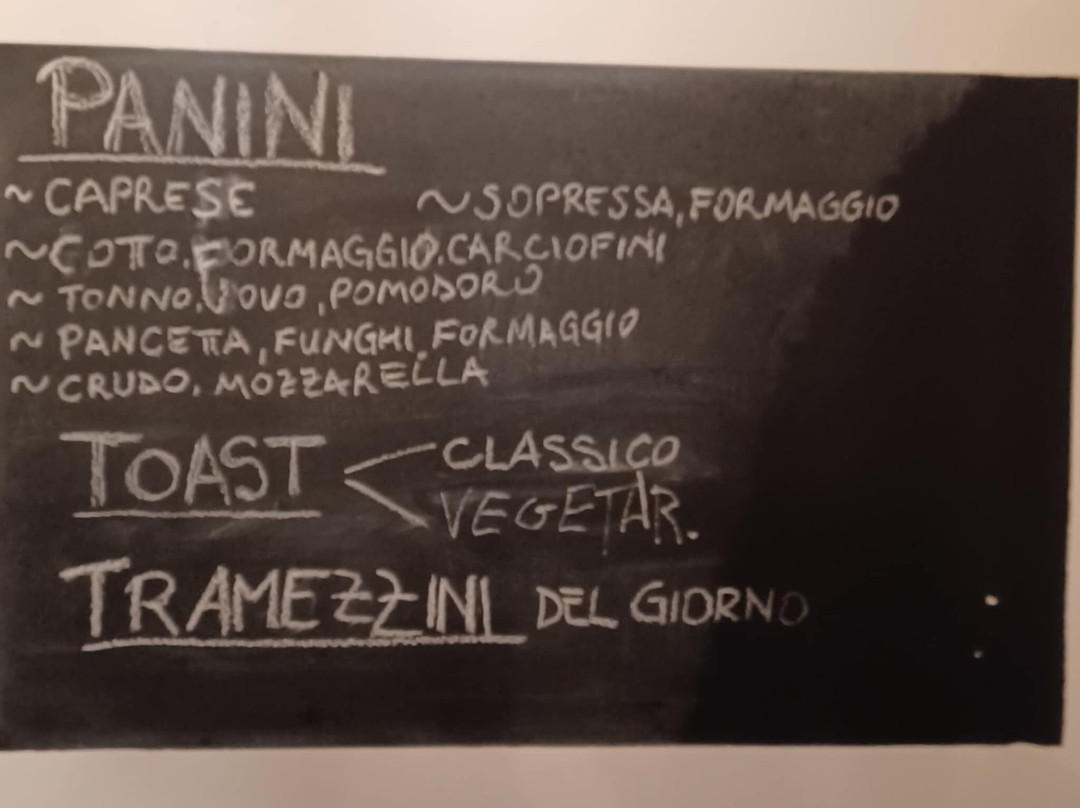 PANINI
~ CAPRESE ~ SOPRESSA, FORMAGGIO
~ COTTO, FORMAGGIO, CARCIOFINI
~ TONNO, UOVO, POMODORO
~ PANCETTA, FUNGHI, FORMAGGIO
~ CRUDO, MOZZARELLA
TOAST CLASSICO
VEGETAR.
TRAMEZZINI DEL GIORNO